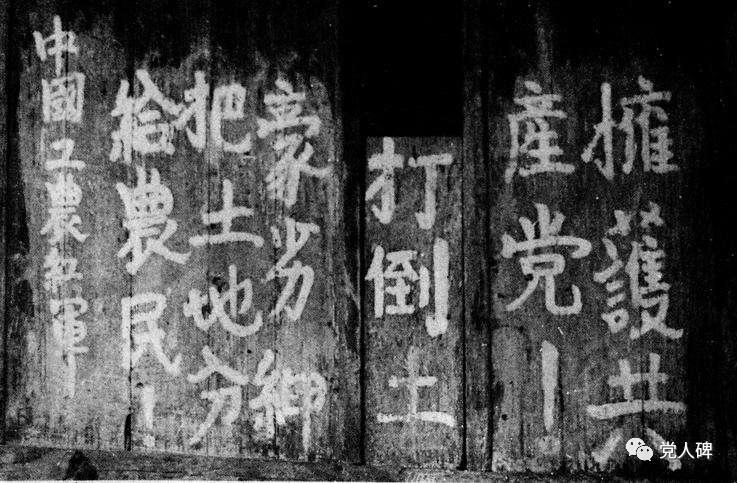 擁護共
產党！
打倒土
豪劣紳
把土地分
給農民！
中國工農紅軍！
党人碑